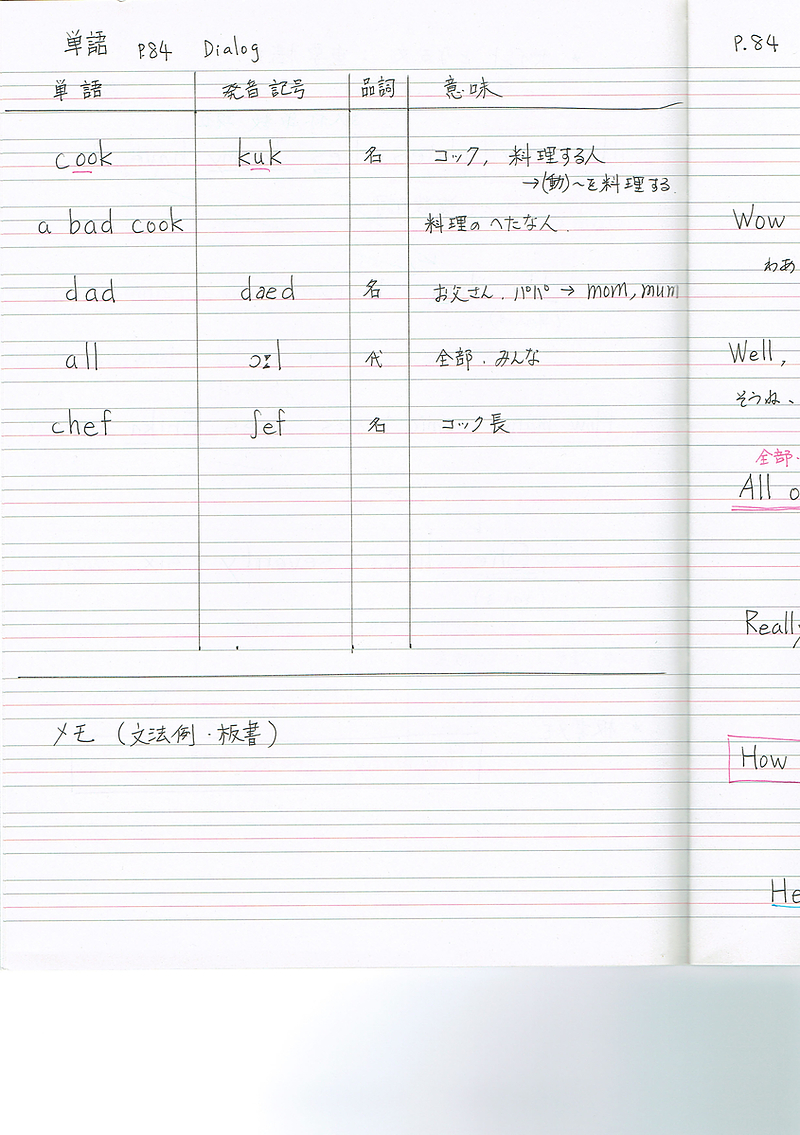 単語 P.84 Dialog
単語 発音記号 品詞 意味
cook kuk 名 コック, 料理する人
→(動)~を料理する.
a bad cook 料理のへたな人.
dad daed 名 お父さん. パパ → mom, mum
all ɔːl 代 全部. みんな
chef ʃef 名 コック長
メモ (文法例・板書)
P.84
Wow
わあ
Well,
そうね、
全部.
All o
Really
How
He